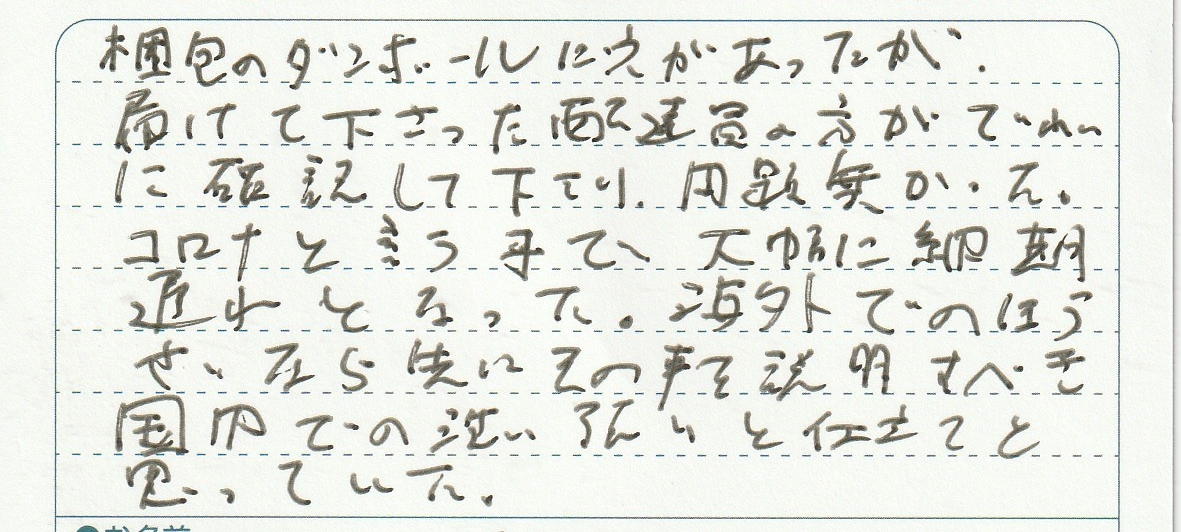 梱包のダンボールに穴があったが、
届けて下さった配達員の方がていねい
に確認して下さり、問題無かった。
コロナと言う事で、大幅に納期
遅れとなった。海外でのほう
せいなら先にその事を説明すべき
国内での洗い張りと仕立てと
思っていた。
お名前